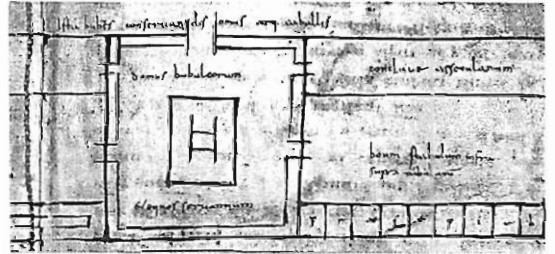 hic bubus conservandis domus atq caballis
domus bubulcorum
conclave assecularum
boum stabulum infra
supra tabulatum
& equos servantium